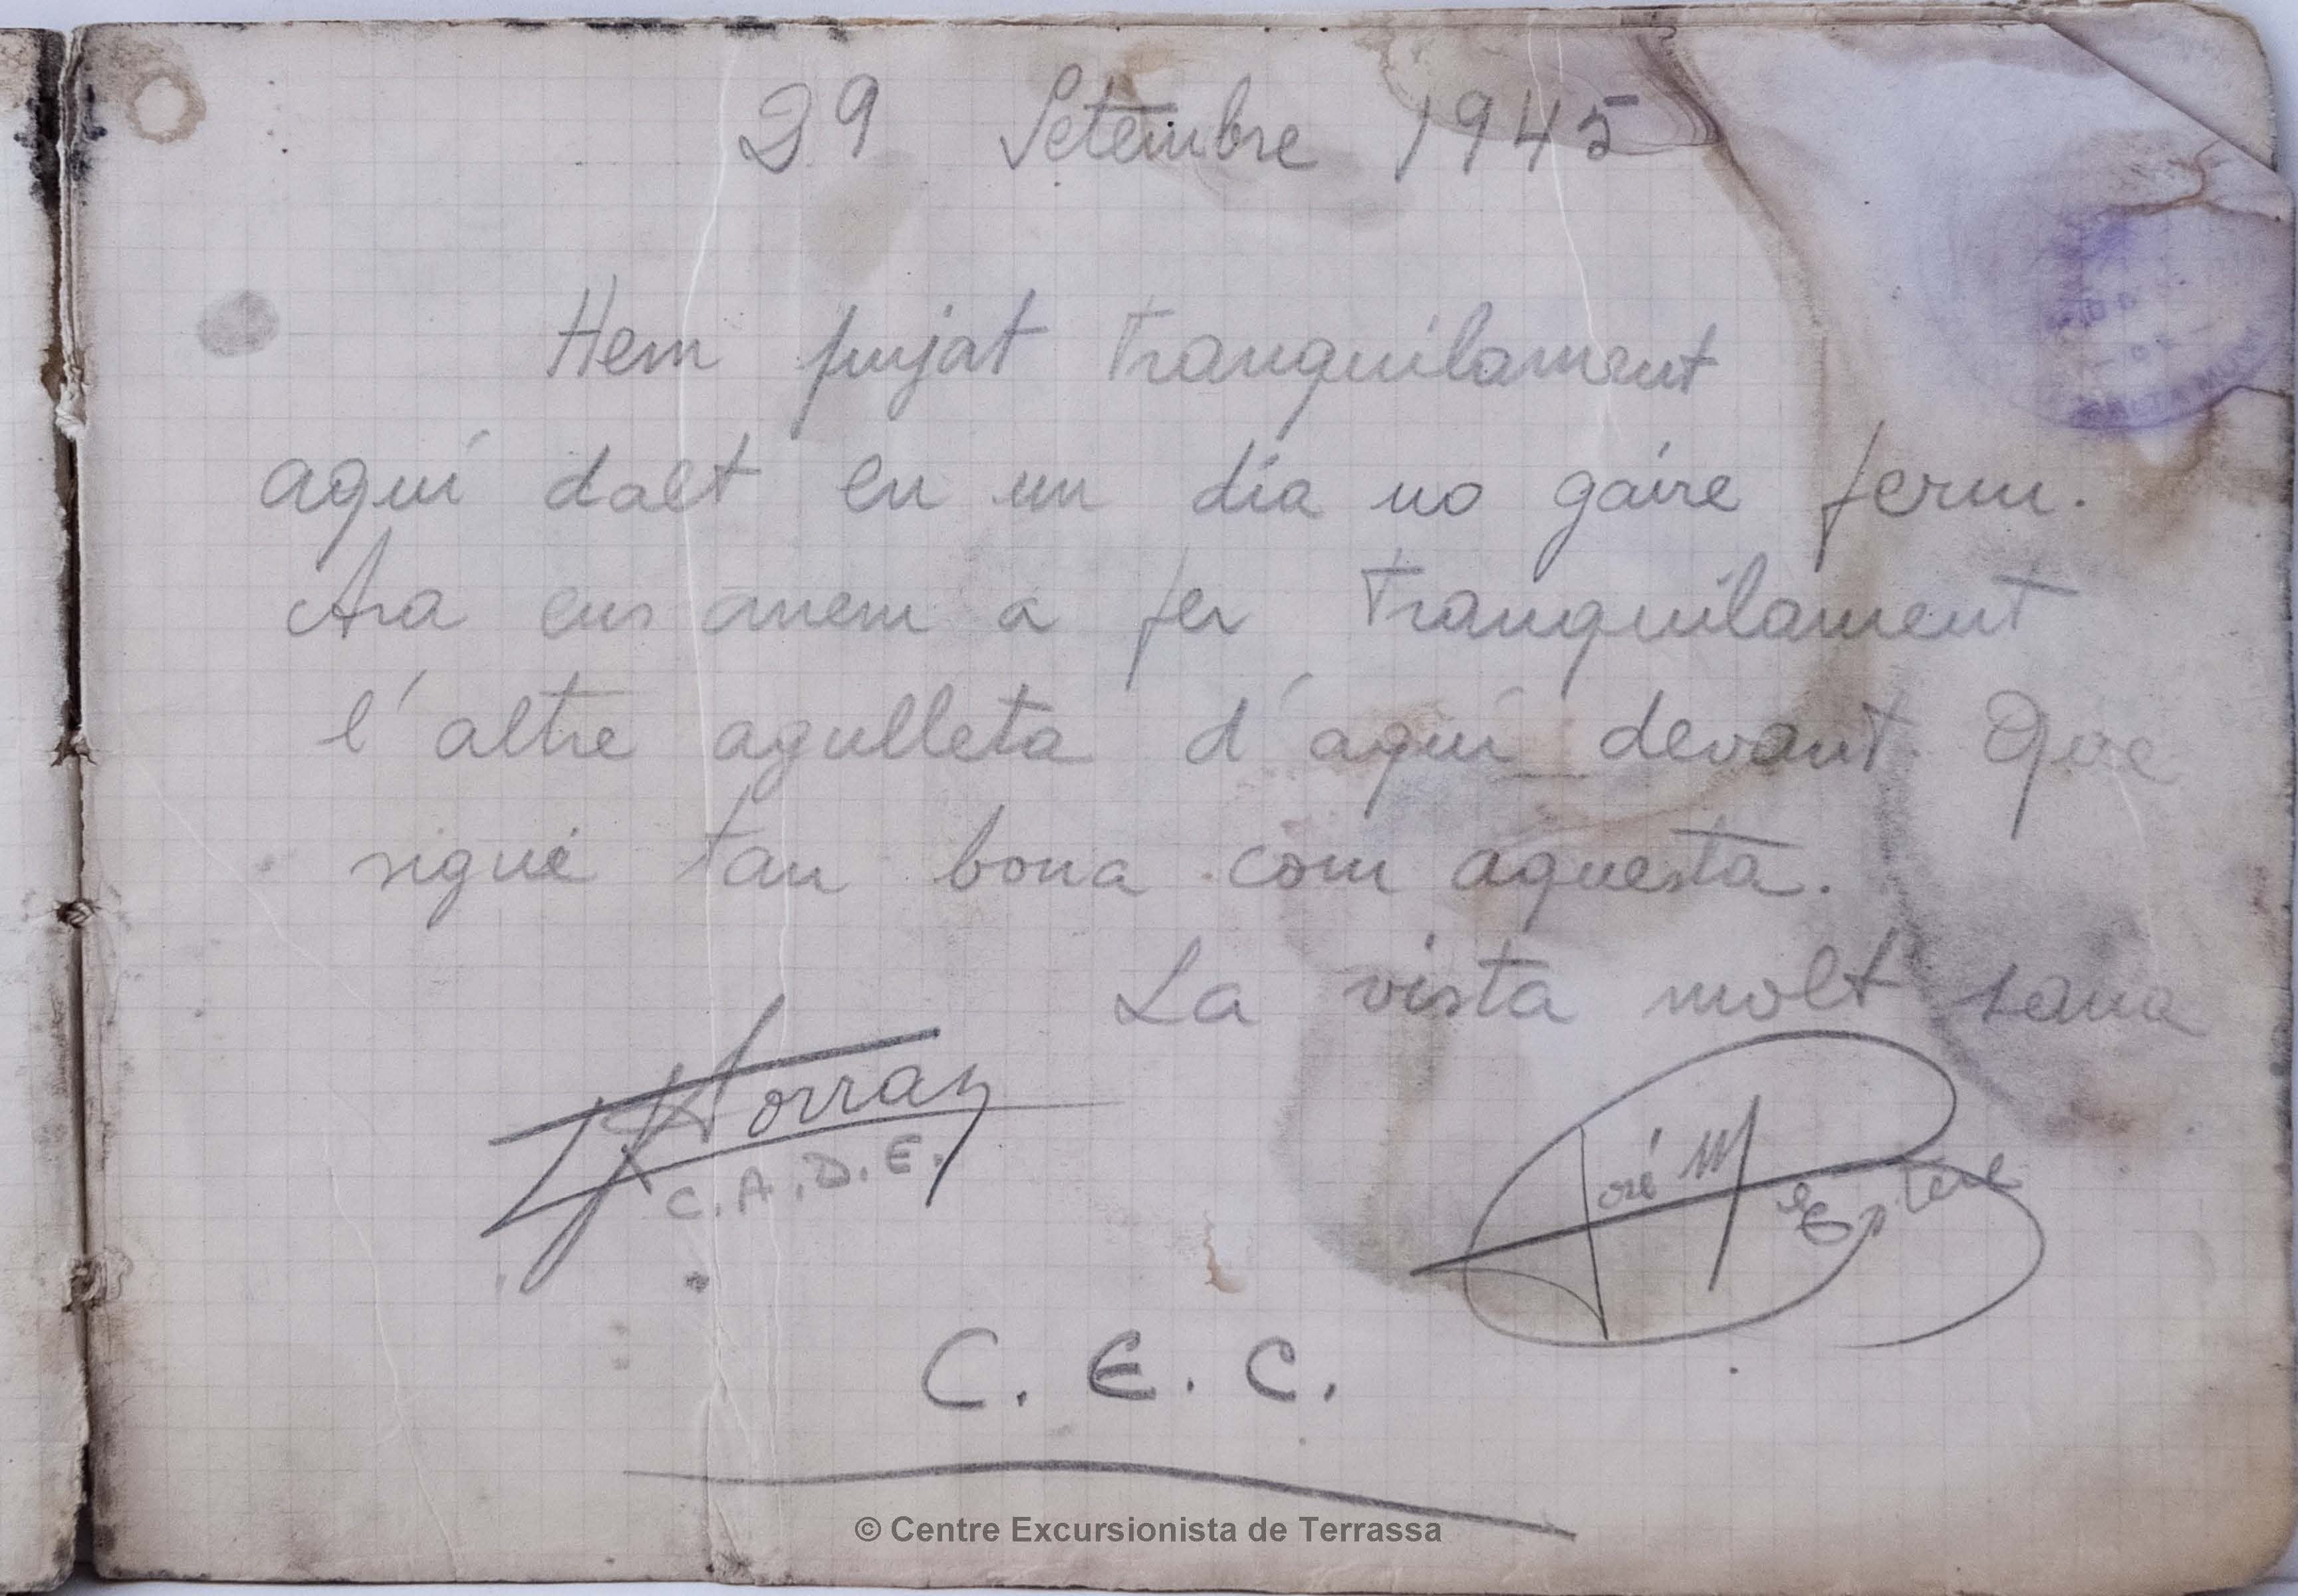 29 Setembre 1945
Hem pujat tranquilament
aquí dalt en un día no gaire ferm.
Ara ens anem a fer tranquilament
l'altre agulleta d'aquí devant. Que
sigui tan bona com aquesta.
La vista molt sana
Torras
C.A.D.E.
José M
C. E. C.
© Centre Excursionista de Terrassa